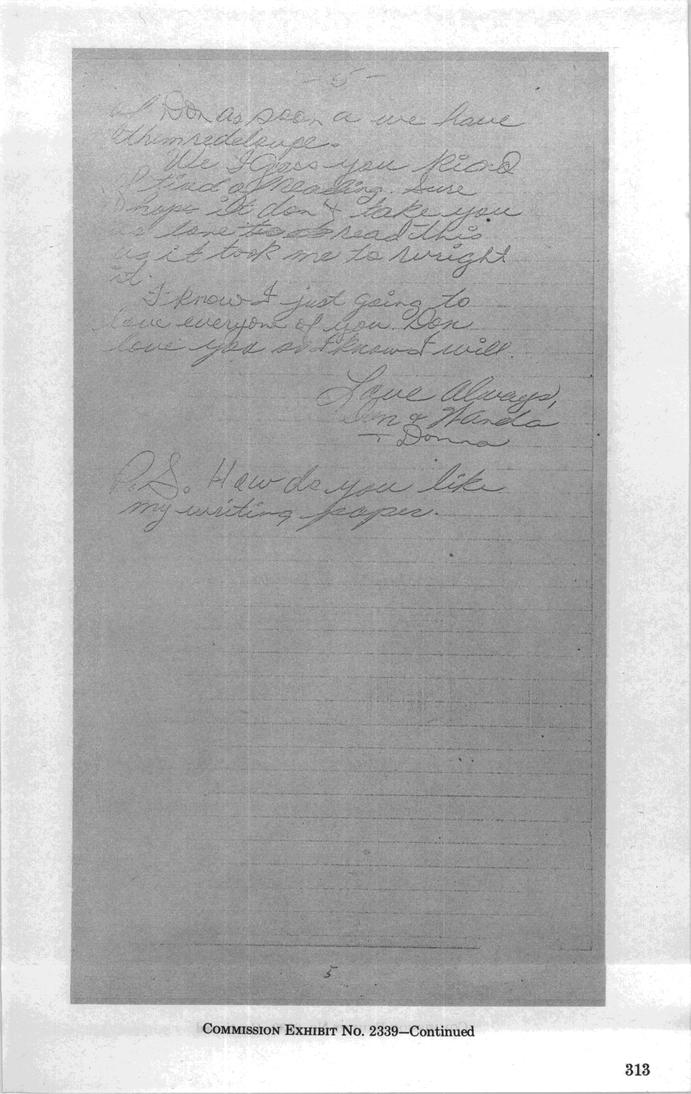 - 5 -
of Don as soon a we have
them redeloupe.
We I Gess you kind
kind of reading. Sure
hope it don't take you
as lone to read this
as it took me to wright
it.
I know I just going to
love everyone of you. Don
love you so I know I will.
Love Always,
Don & Wanda
+ Donna
P.S. How do you like
my writing paper.
5
COMMISSION EXHIBIT No. 2339—Continued
313